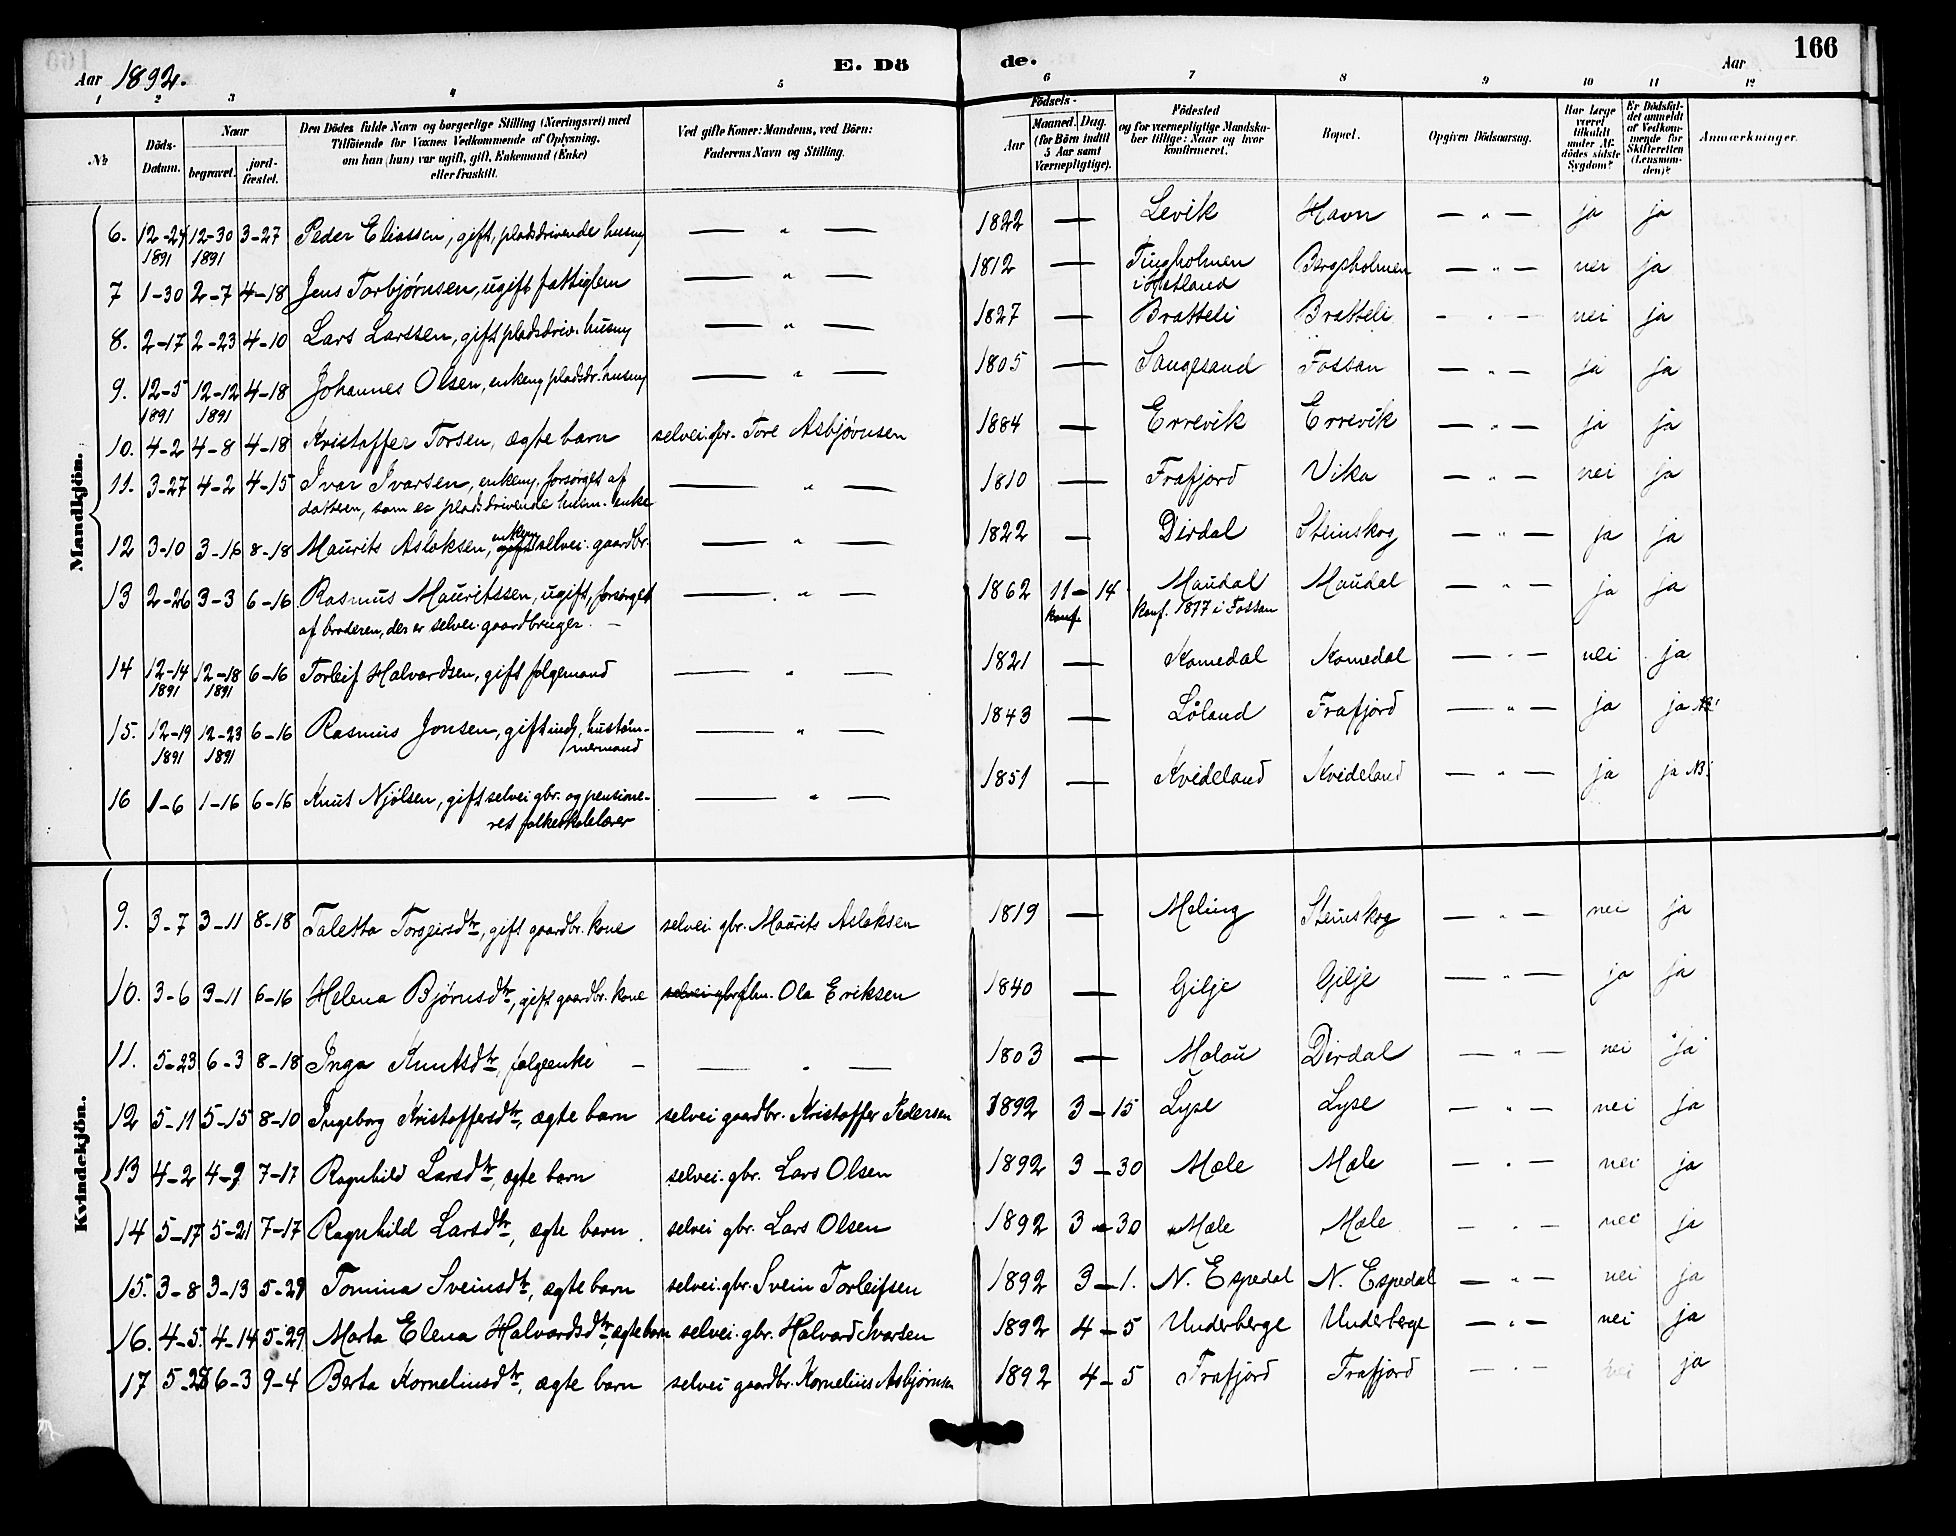 Aar 1892.
E. Dö
de.
Aar
166
1 2 3 4 5 6 7 8 9 10 11 12
№
Döds-Datum.
Naar
begravet.
jord-fæstet.
Den Dödes fulde Navn og borgerlige Stilling (Næringsvei) med
Tilföiende for Voxnes Vedkommende af Oplysning,
om han (hun) var ugift, gift, Enkemand (Enke)
eller fraskilt.
Ved gifte Koner: Mandens, ved Börn:
Faderens Navn og Stilling.
Födsels-
Aar
Maaned. Dag.
(for Börn indtil
5 Aar samt
Værnepligtige).
Födested
og for værnepligtige Mandska-
ber tillige: Naar og hvor
konfirmeret.
Bopæl.
Opgiven Dödsaarsag.
Har Læge
været
tilkaldt
under Af-
dödes sidste
Sygdom?
Er Dödsfal-
det anmeldt
af Vedkom-
mende for
Skifteretten
(Lensman-
den)?
Anmærkninger.
Mandkjön.
6. 12-24 1891 12-30 1891 3-27 Peder Eliassen, gift, pladsdrivende husm — " — 1822 — Levik Havn — " — ja ja
7 1-30 2-7 4-18 Jens Torbjørnsen, ugift fattiglem — " — 1812 — Tingholmen i Hetland Bergsholmen — " — nei ja
8. 2-17 2-23 4-10 Lars Larssen, gift pladsdriv. husm — " — 1827 — Bratteli Bratteli — " — nei ja
9. 12-5 1891 12-12 1891 4-18 Johannes Olsen, enkem pladsdr. husm — " — 1805 — Saugesand Fossan — " — ja ja
10. 4-2 4-8 4-18 Kristoffer Torsen, ægte barn selvei. gbr. Tore Asbjørnsen 1884 — Errevik Errevik — " — ja ja
11. 3-27 4-2 4-15 Ivar Ivarsen, enkem. forsørget af
datteren, som er pladsdrivende husm. enke — " — 1810 — Frafjord Vika — " — nei ja
12 3-10 3-16 8-18 Maurits Aslaksen, enkem selvei. gaardbr. — " — 1822 — Dirdal Steinskog — " — ja ja
13 2-26 3-3 6-16 Rasmus Mauritssen, ugift, forsørget
af broderen, der er selvei. gaardbruger. — " — 1862 11-14 Maudal Maudal — " — ja ja
konf. konf. 1877 i Fossan
14 12-14 1891 12-18 1891 6-16 Torleif Halvardsen, gift folgemand — " — 1821 — Komedal Komedal — " — nei ja
15. 12-19 1891 12-23 1891 6-16 Rasmus Jonsen, gift ind., hustøm-
mermand — " — 1843 — Löland Frafjord — " — ja ja NB!
16 1-6 1-16 6-16 Knut Njølsen, gift selvei gbr. og pensione-
ret folkeskolelærer — " — 1851 — Kvideland Kvideland — " — ja ja NB!
Kvindekjön.
9. 3-7 3-11 8-18 Taletta Torgeirsdtr, gift gaardbr. kone selvei. gbr. Maurits Aslaksen 1819 — Meling Steinskog — " — nei ja
10. 3-6 3-11 6-16 Helena Bjørnsdtr, gift gaardbr. kone selvei gbr flm. Ola Eriksen 1840 — Gilje Gilje — " — ja ja
11. 5-23 6-3 8-18 Inga Knutsdtr, folgeenke — — " — 1803 — Molau Dirdal — " — nei ja
12 5-11 5-15 8-10 Ingeborg Kristoffersdtr, ægte barn selvei gaardbr. Kristoffer Pedersen 1892 3-15 Lyse Lyse — " — nei ja
13 4-2 4-9 7-17 Ragnhild Larsdtr, ægte barn selvei. gbr. Lars Olsen 1892 3-30 Mæle Mæle — " — nei ja
14 5-17 5-21 7-17 Ragnhild Larsdtr, ægte barn. selvei gbr. Lars Olsen 1892 3-30 Mæle Mæle — " — nei ja
15. 3-8 3-13 5-29 Tomina Sveinsdtr, ægte barn selvei. gbr. Svein Torleifsen 1892 3-1. N. Espedal N. Espedal — " — nei ja
16. 4-5. 4-14 5-29 Marta Elena Halvardsdtr, ægte barn selvei. gbr. Halvard Ivarsen 1892 4-5 Underberge Underberge — " — nei ja
17 5-28 6-3 9-4 Berta Korneliusdtr, ægte barn selvei gaardbr. Kornelius Asbjørnsen 1892 4-5 Frafjord Frafjord — " — nei ja